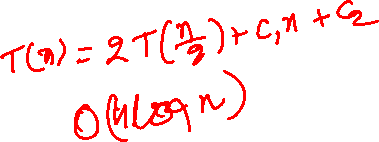 T(n) = 2T(n/2) + C₁n + C₂
O(nlogn)